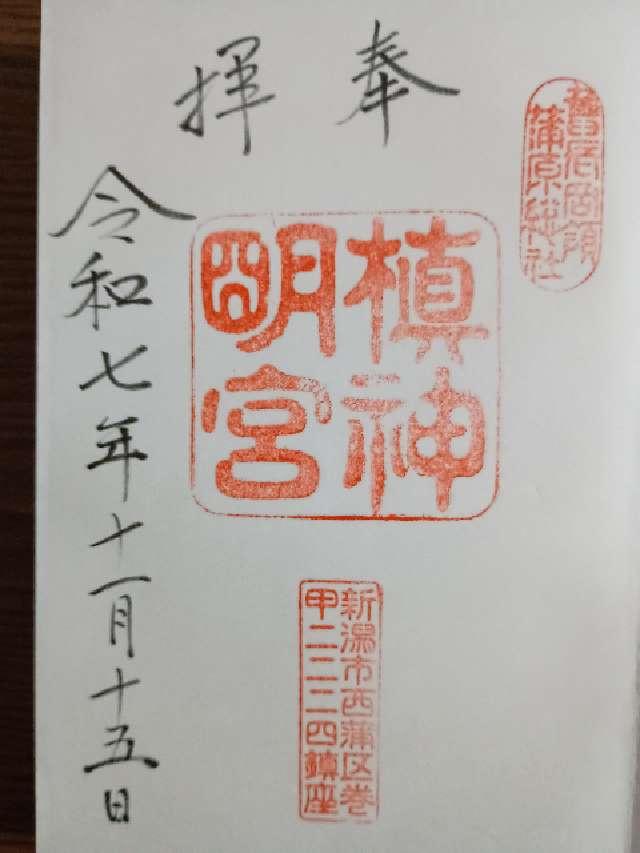 舊長岡領
蒲原総社
奉拝
槇神
明宮
新潟市西蒲区巻
甲二二二四鎮座
令和七年十一月十五日